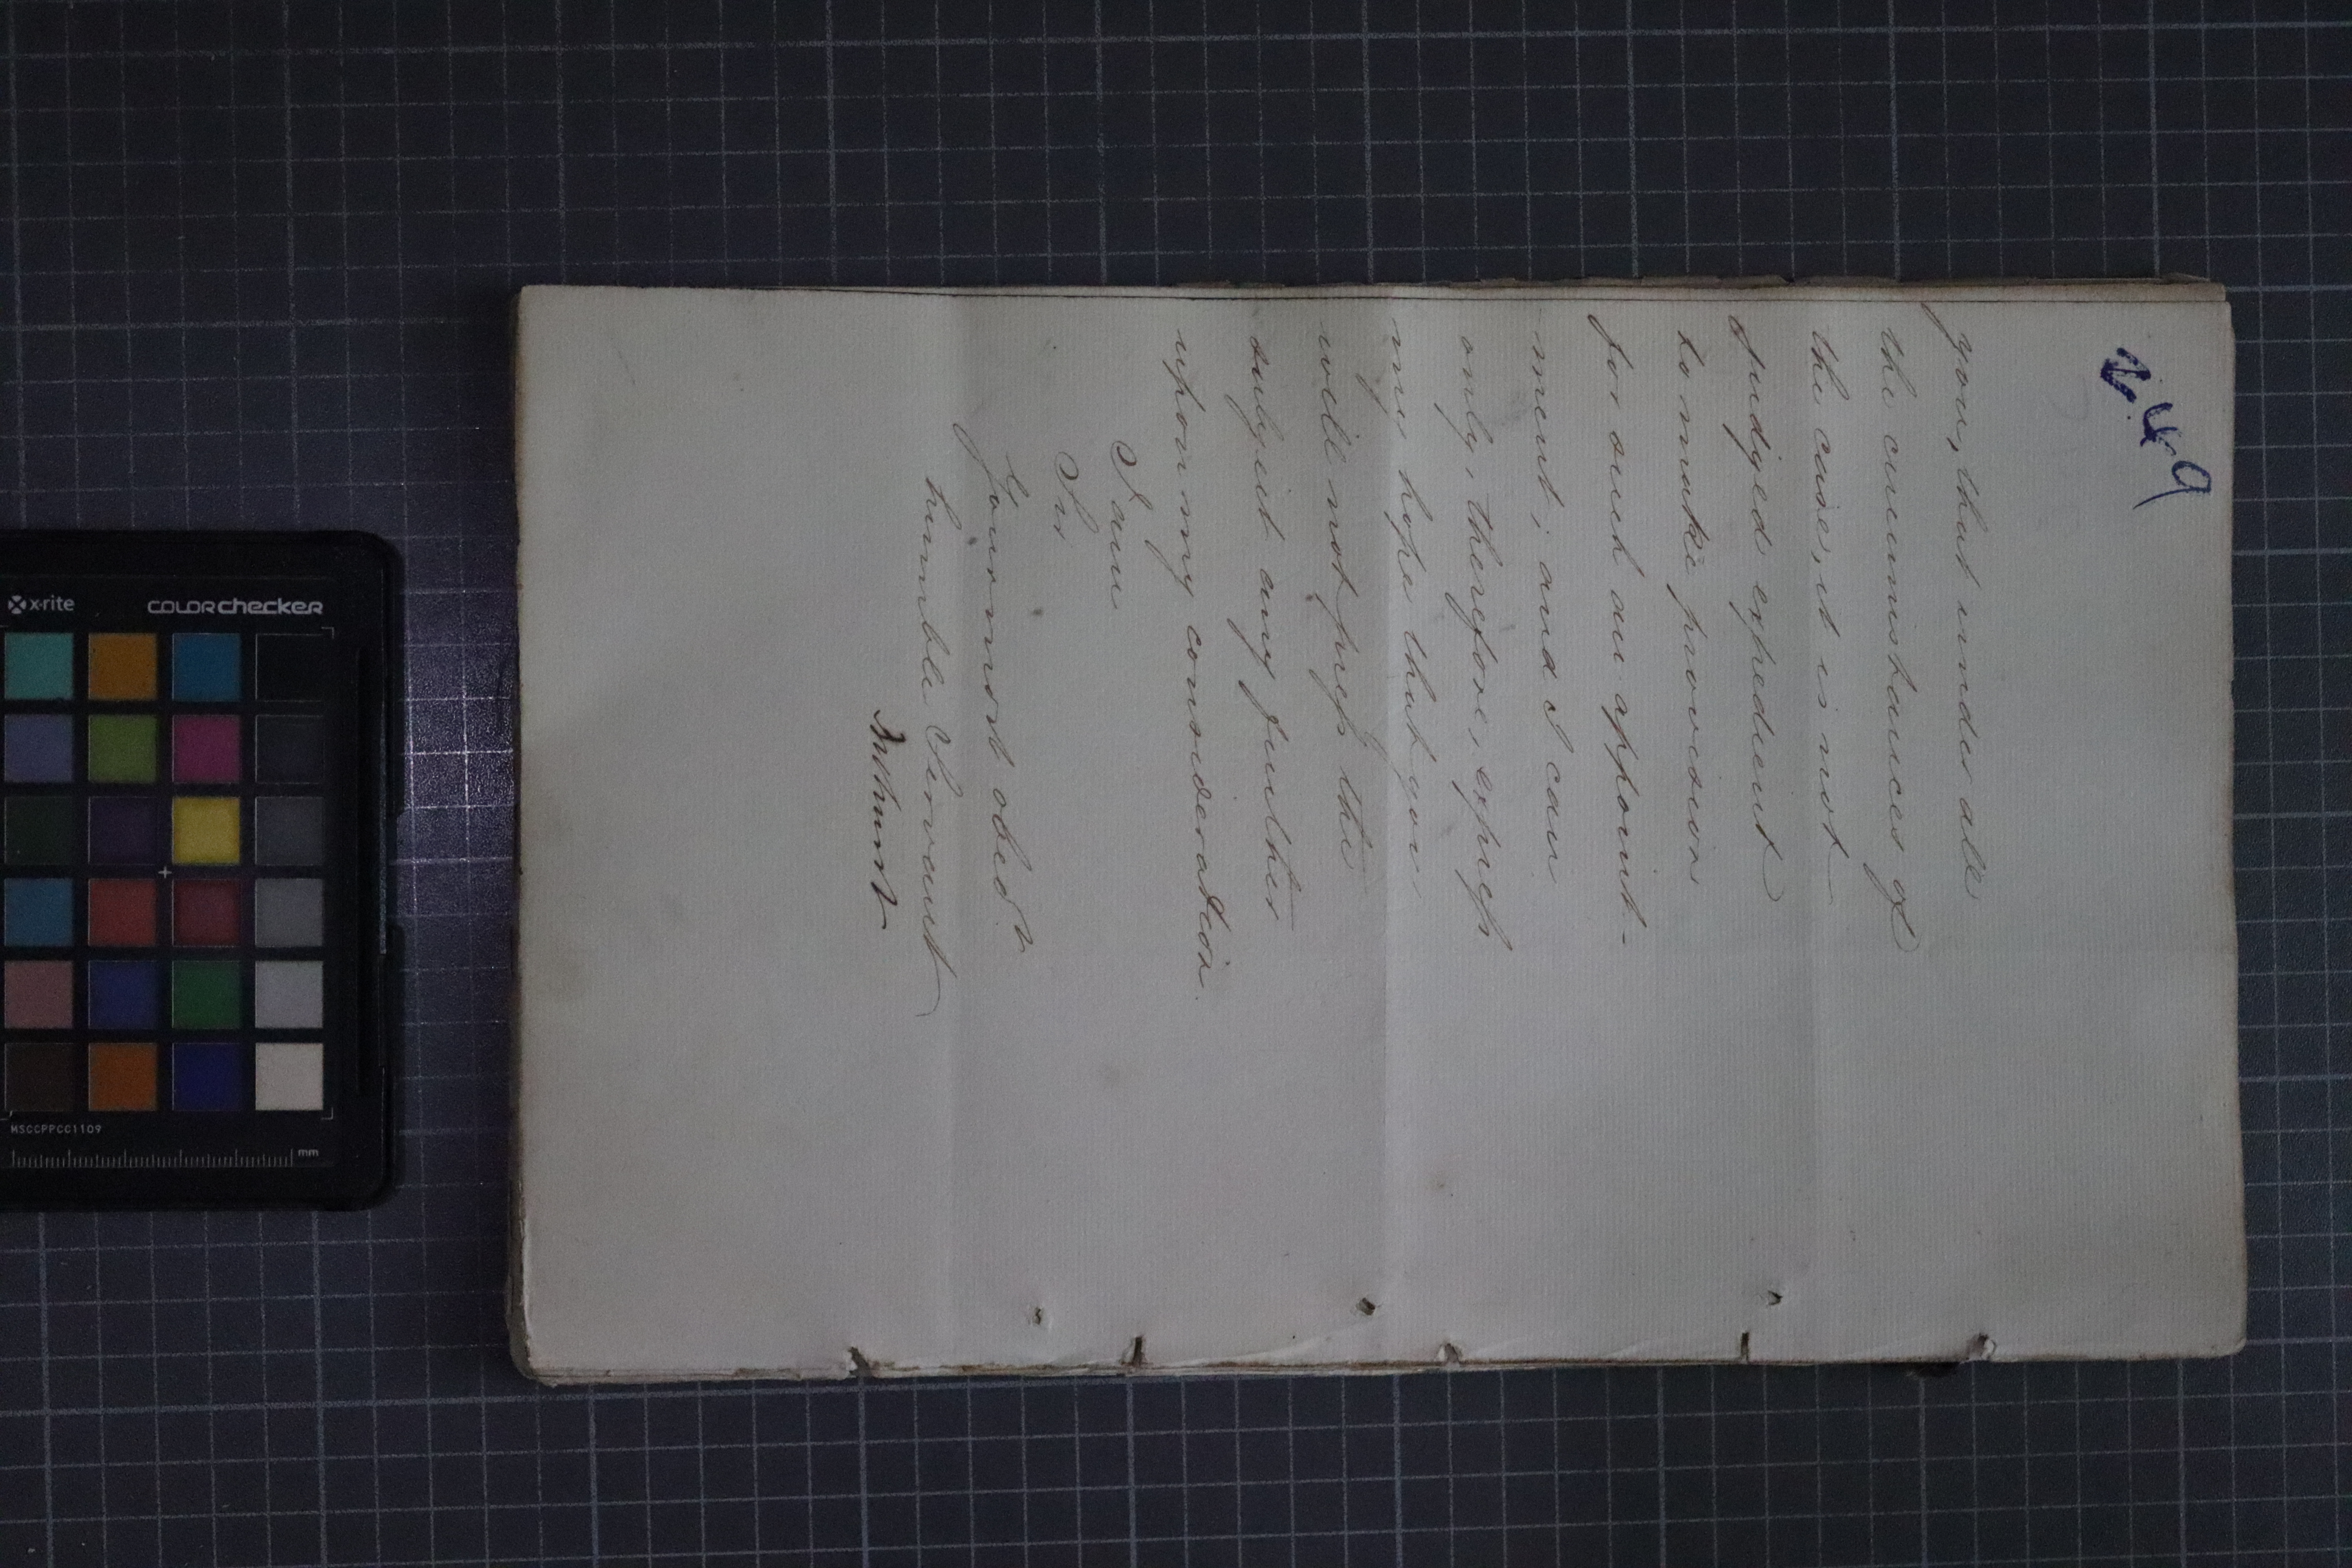 249
you, that under all
the circumstances of
the case, it is not
judged expedient
to make provision
for such an appoint-
ment; and I can
only, therefore, express
my hope that you
will not press the
subject any further
upon my consideration.
I am
Sir
Your most obedt
humble Servant
Bathurst
x-rite
colorchecker
MSCCPPCC1109
mm